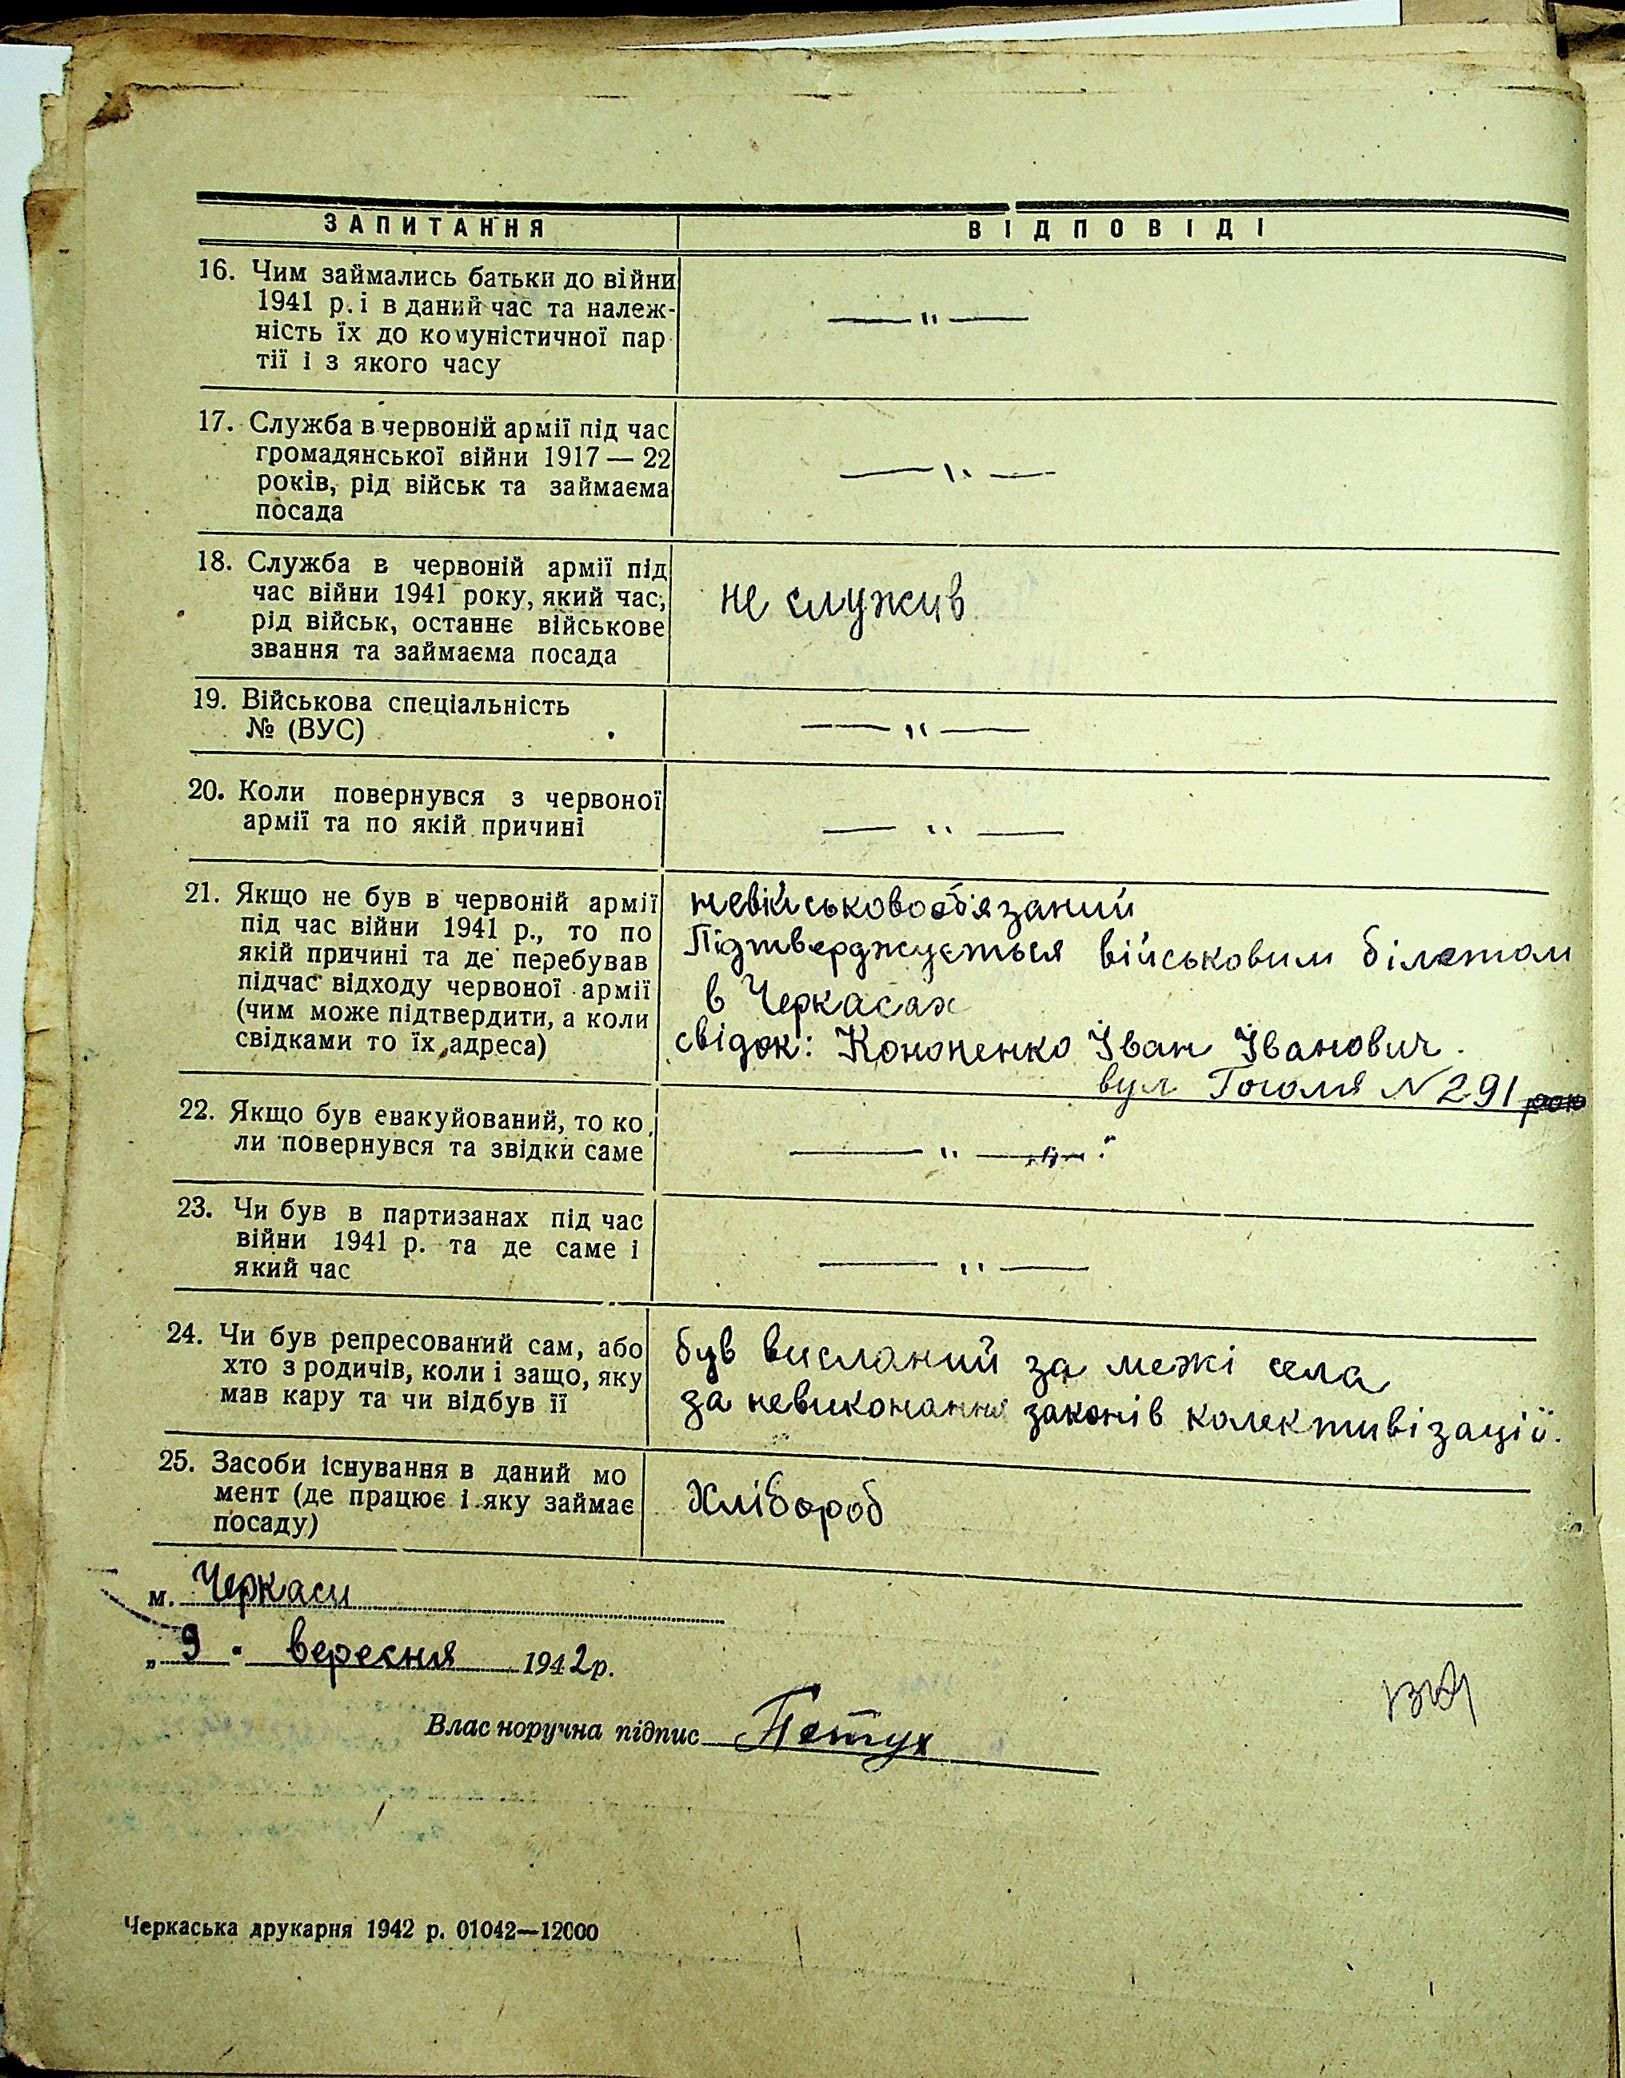 ЗАПИТАННЯ ВІДПОВІДІ
16. Чим займались батьки до війни
1941 р. і в даний час та належ-
ність їх до комуністичної пар
тії і з якого часу
— " —
17. Служба в червоній армії під час
громадянської війни 1917 — 22
років, рід військ та займаєма
посада
— " —
18. Служба в червоній армії під
час війни 1941 року, який час,
рід військ, останнє військове
звання та займаєма посада
не служив
19. Військова спеціальність
№ (ВУС)
— " —
20. Коли повернувся з червоної
армії та по якій причині
— " —
21. Якщо не був в червоній армії
під час війни 1941 р., то по
якій причині та де перебував
підчас відходу червоної армії
(чим може підтвердити, а коли
свідками то їх адреса)
невійськовообязаний
Підтверджується військовим білетом
в Черкасах
свідок: Кононенко Іван Іванович.
вул Гоголя N 291
22. Якщо був евакуйований, то ко
ли повернувся та звідки саме
— " —
23. Чи був в партизанах під час
війни 1941 р. та де саме і
який час
— " —
24. Чи був репресований сам, або
хто з родичів, коли і защо, яку
мав кару та чи відбув її
був висланий за межі села
за невиконання законів колективізації.
25. Засоби існування в даний мо
мент (де працює і яку займає
посаду)
Хлібороб
м. Черкаси
„ 9 " вересня 1942 р.
Власноручна підпис Петух
Черкаська друкарня 1942 р. 01042—12000